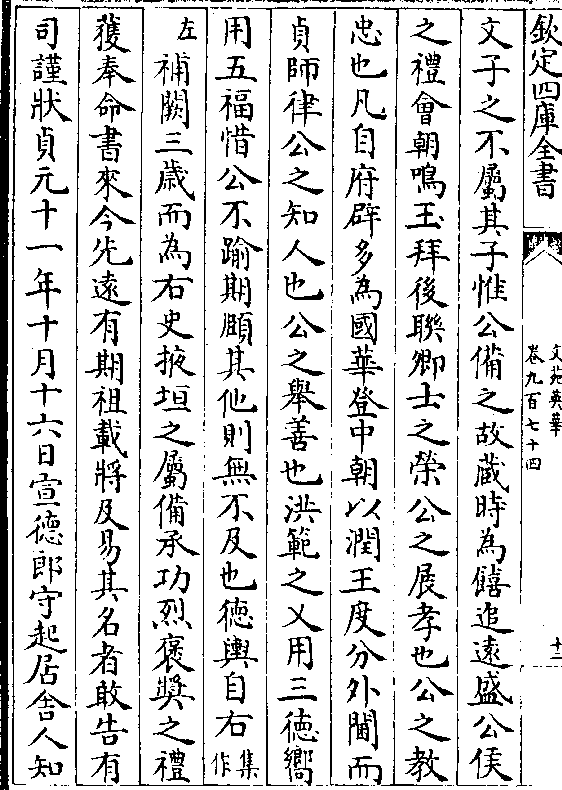 欽定四庫全書
文苑英華
卷九百七十四
十二
文子之不屬其子惟公備之故蔵時為饎追遠盛公侯
之禮會朝鳴玉拜後聨卿士之榮公之展孝也公之教
忠也凡自府辟多為國華登中朝以潤王度分外閫而
貞師律公之知人也公之舉善也洪範之乂用三徳嚮
用五福惜公不踰期頤其他則無不及也徳輿自右集作
左補闕三歳而為右史掖垣之屬備承功烈褒奬之禮
獲奉命書來今先遠有期祖載將及易其名者敢告有
司謹狀貞元十一年十月十六日宣徳郎守起居舎人知